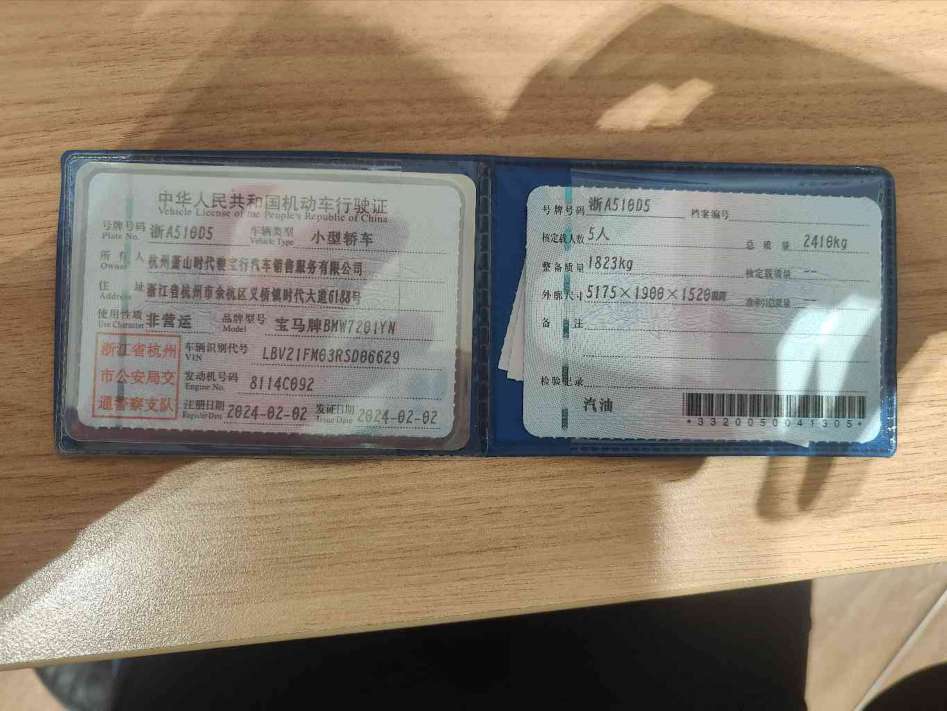 中华人民共和国机动车行驶证
Vehicle License of the People's Republic of China
号牌号码 浙A510D5 车辆类型 小型轿车
Plate No. Vehicle Type
所有人 杭州萧山时代骏宝行汽车销售服务有限公司
Owner
住址 浙江省杭州市余杭区义桥镇时代大道6188号
Address
使用性质 非营运 品牌型号 宝马牌BMW7201YN
Use Character Model
浙江省杭州
市公安局交
通警察支队
车辆识别代号 LBV21FM03RSD06629
VIN
发动机号码 8114C092
Engine No.
注册日期 2024-02-02 发证日期 2024-02-02
Register Date Issue Date
号牌号码 浙A510D5 档案编号
核定载人数 5人 总质量 2410kg
整备质量 1823kg 核定载质量 --
外廓尺寸 5175×1900×1520mm 准牵引总质量 --
备注
检验记录
汽油
*3320050041305*